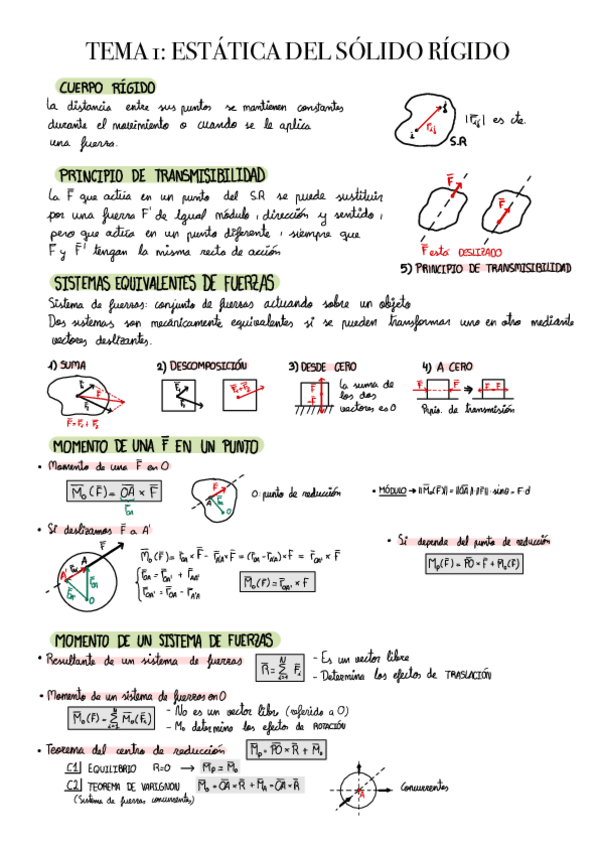 TEMA 1: ESTÁTICA DEL SÓLIDO RÍGIDO
CUERPO RÍGIDO
La distancia entre sus puntos se mantienen constantes
durante el movimiento o cuando se le aplica
una fuerza.
i
j
r̄ij
S.R
|r̄ij| es cte.
PRINCIPIO DE TRANSMISIBILIDAD
La F̄ que actúa en un punto del S.R se puede sustituir
por una fuerza F̄' de igual módulo, dirección y sentido,
pero que actúa en un punto diferente, siempre que
F̄ y F̄' tengan la misma recta de acción
F̄
F̄
F̄ está DESLIZADO
5) PRINCIPIO DE TRANSMISIBILIDAD
SISTEMAS EQUIVALENTES DE FUERZAS
Sistema de fuerzas: conjunto de fuerzas actuando sobre un objeto
Dos sistemas son mecánicamente equivalentes si se pueden transformar uno en otro mediante
vectores deslizantes.
1) SUMA
2) DESCOMPOSICIÓN
3) DESDE CERO
4) A CERO
F̄ = F̄1 + F̄2
F̄1+F̄2
F̄
-F̄
la suma de
los dos
vectores es 0
Prpio. de transmisión
MOMENTO DE UNA F̄ EN UN PUNTO
• Momento de una F̄ en O
M̄o(F̄) = OA × F̄
r̄OA
O: punto de reducción
• MÓDULO → ||M̄o(F̄)|| = ||OA||·||F̄||· sinθ = F·d
• Si deslizamos F̄ a A'
M̄o(F̄) = r̄OA × F̄ - r̄A'A × F̄ = (r̄OA - r̄A'A) × F̄ = r̄OA' × F̄
r̄OA = r̄OA' + r̄A'A
r̄OA' = r̄OA - r̄A'A
M̄o(F̄) = r̄OA' × F̄
• Si depende del punto de reducción
M̄p(F̄) = PO × F̄ + M̄o(F̄)
MOMENTO DE UN SISTEMA DE FUERZAS
• Resultante de un sistema de fuerzas
R̄ = Σ F̄i
N
i=1
- Es un vector libre
- Determina los efectos de TRASLACIÓN
• Momento de un sistema de fuerzas en O
M̄o(F̄) = Σ M̄o(F̄i)
N
i=1
- No es un vector libre (referido a O)
- Mo determina los efectos de ROTACIÓN
• Teorema del centro de reducción
M̄p = PO × R̄ + M̄o
C1| EQUILIBRIO R=0 → M̄p = M̄o
C2| TEOREMA DE VARIGNON M̄o = OA × R̄ + M̄A = OA × R̄
(Sistema de fuerzas concurrentes)
A
Concurrentes